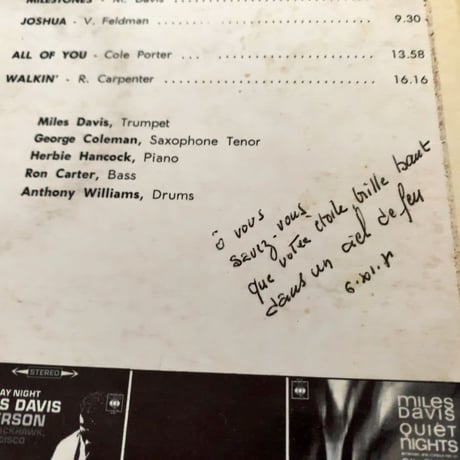 MILESTONES - M. Davis
JOSHUA - V. Feldman .................. 9.30
ALL OF YOU - Cole Porter ... .................. 13.58
WALKIN' - R. Carpenter .................. 16.16
Miles Davis, Trumpet
George Coleman, Saxophone Tenor
Herbie Hancock, Piano
Ron Carter, Bass
Anthony Williams, Drums
ô vous
savez-vous
que votre étoile brille haut
dans un ciel de feu
STEREO
AY NIGHT
S DAVIS
ERSON
CKHAWK,
ISCO
CBS
CBS
MILES
DAVIS
QUIET
NIGHTS